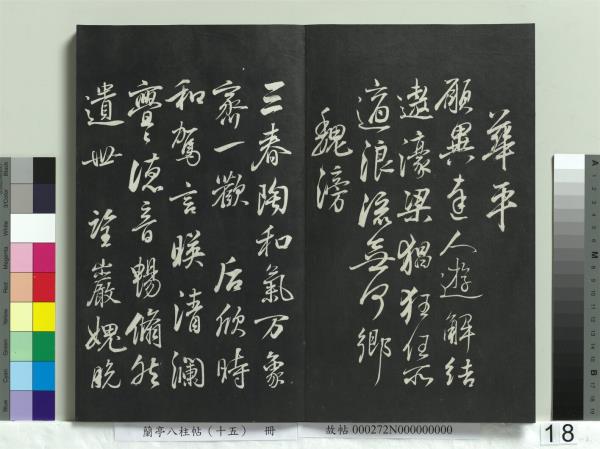 華平
願與達人遊解結
遨濠梁狂任所
適浪流無何鄉
魏滂
三春陶和氣万象
齊一歡后欣時
和駕言暎清瀾
亹亹德音暢脩然
遺世望巖愧脫
蘭亭八柱帖(十五) 冊
故帖 000272N000000000
18